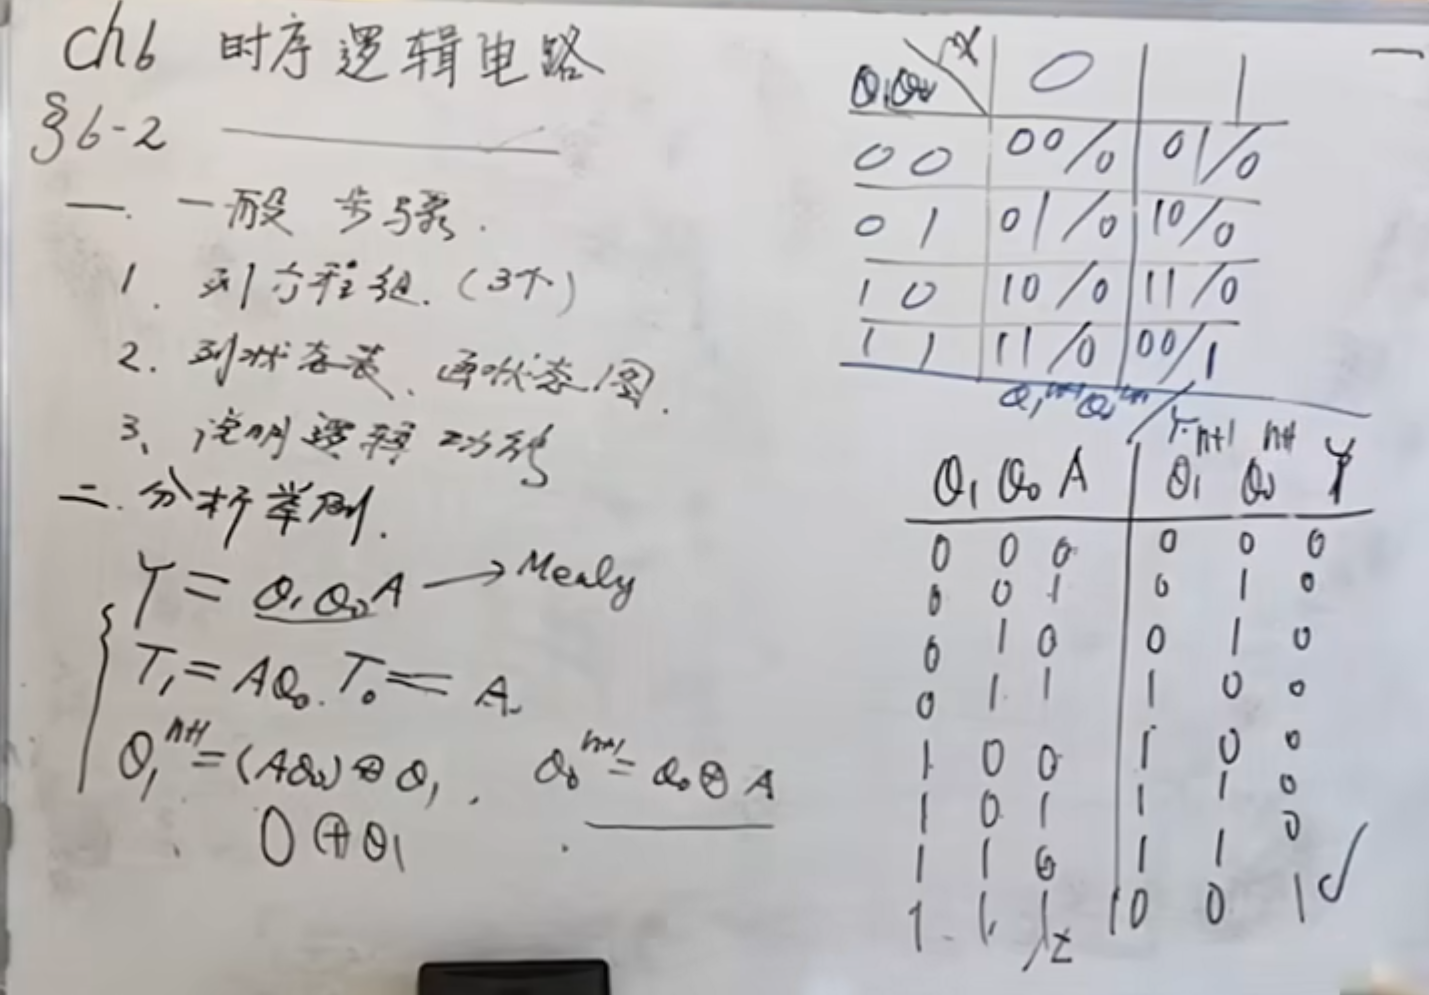 ch6 时序逻辑电路
§6-2
一. 一般步骤.
1. 列方程组. (3个)
2. 列状态表、画状态图.
3、说明逻辑功能
二.分析举例.
Y = Q₁Q₀A → Mealy
T₁ = AQ₀. T₀ = A.
Q₁ⁿ⁺¹ = (AQ₀) ⊕ Q₁, Q₀ⁿ⁺¹ = Q₀ ⊕ A
0 ⊕ Q₁
Q₁Q₀ 0 1
0 0 00/0 01/0
0 1 01/0 10/0
1 0 10/0 11/0
1 1 11/0 00/1
Q₁ⁿ⁺¹Q₀ⁿ⁺¹/Y
Q₁ Q₀ A Q₁ⁿ⁺¹ Q₀ⁿ⁺¹ Y
0 0 0 0 0 0
0 0 1 0 1 0
0 1 0 0 1 0
0 1 1 1 0 0
1 0 0 1 0 0
1 0 1 1 1 0
1 1 0 1 1 0
1 1 1 0 0 1 ✓